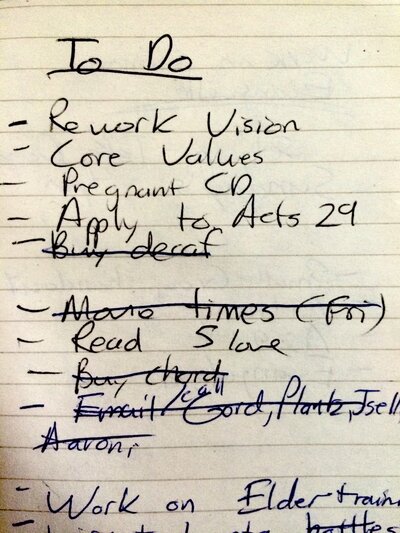 To Do
- Rework Vision
- Core Values
- Pregnant CD
- Apply to Acts 29
- Buy decaf
- times (Fri)
- Read 5 love
- Buy chord
- Email/call Gord, Jsell,
Aaron,
- Work on Elder train
battles